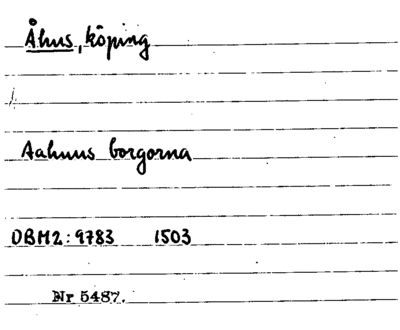 Åhus, köping
Aahuus borgorna
DBM2: 9783 1503
Nr 5487.